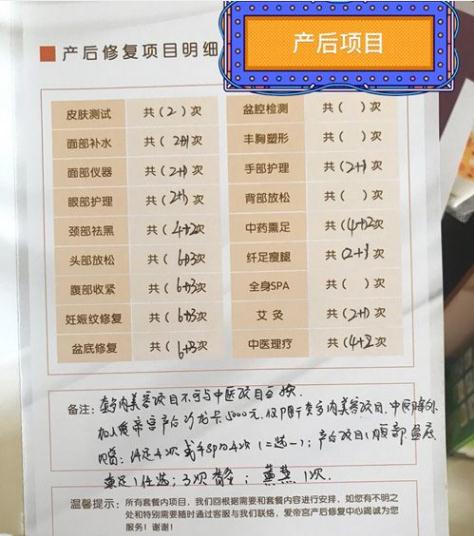 产后项目
产后修复项目明细
皮肤测试 共(2)次 盆腔检测 共( )次
面部补水 共(2+1)次 丰胸塑形 共( )次
面部仪器 共(2+1)次 手部护理 共(2+1)次
眼部护理 共(2+1)次 背部放松 共( )次
颈部祛黑 共(4+2)次 中药熏足 共(4+2)次
头部放松 共(6+3)次 纤足瘦腿 共(2+1)次
腹部收紧 共(6+3)次 全身SPA 共( )次
妊娠纹修复 共(6+3)次 艾灸 共(2+1)次
盆底修复 共(6+3)次 中医理疗 共(4+2)次
备注:套餐内美容项目不可与中医项目互换
加入爱帝宫产后沙龙卡5000元,仅限于套餐内美容项目,中医除外
足4次或手SPA4次(二选一);产后项目
1任选;3次;熏蒸1次.
温馨提示:所有套餐内项目,我们回根据需要和套餐内容进行安排,如您有不明之
处和特别需要随时通过客服与我们联络,爱帝宫产后修复中心竭诚为您
服务!谢谢!